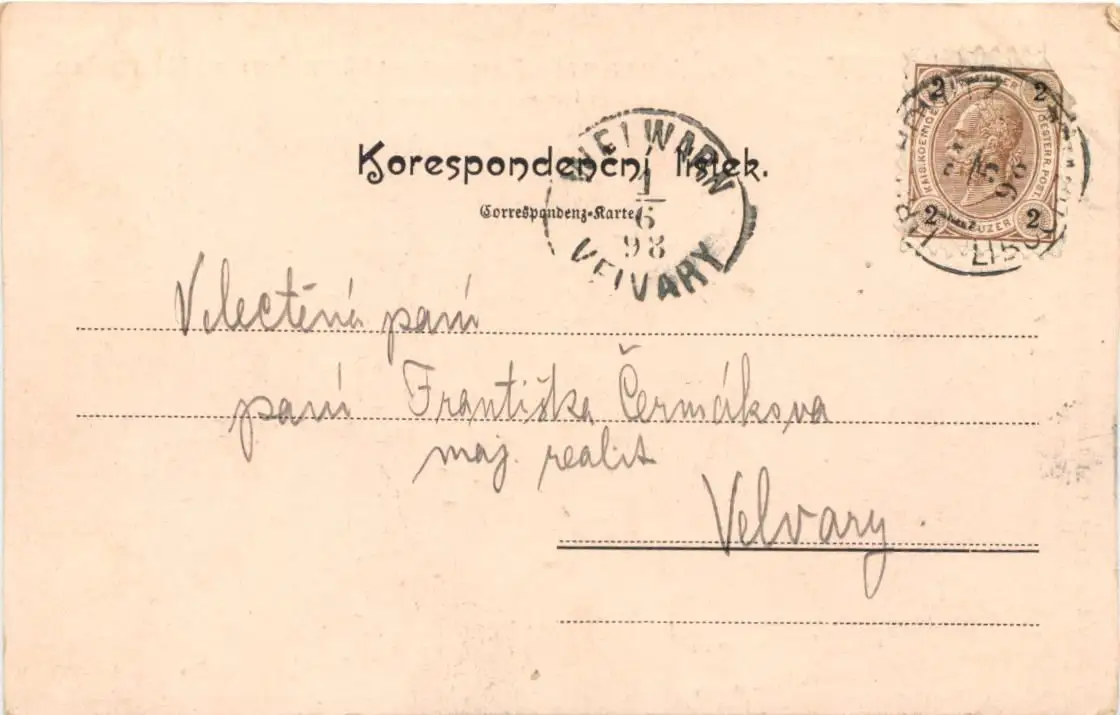 Korespondenční lístek.
Correspondenz-Karte.
WELWARN
1
6
98
VELVARY
2 KREUZER 2
KAIS. KOENIGL. OESTERR. POST.
2 KREUZER 2
5
98
Velectěná paní
paní Františka Čermákova
maj. realit
Velvary.